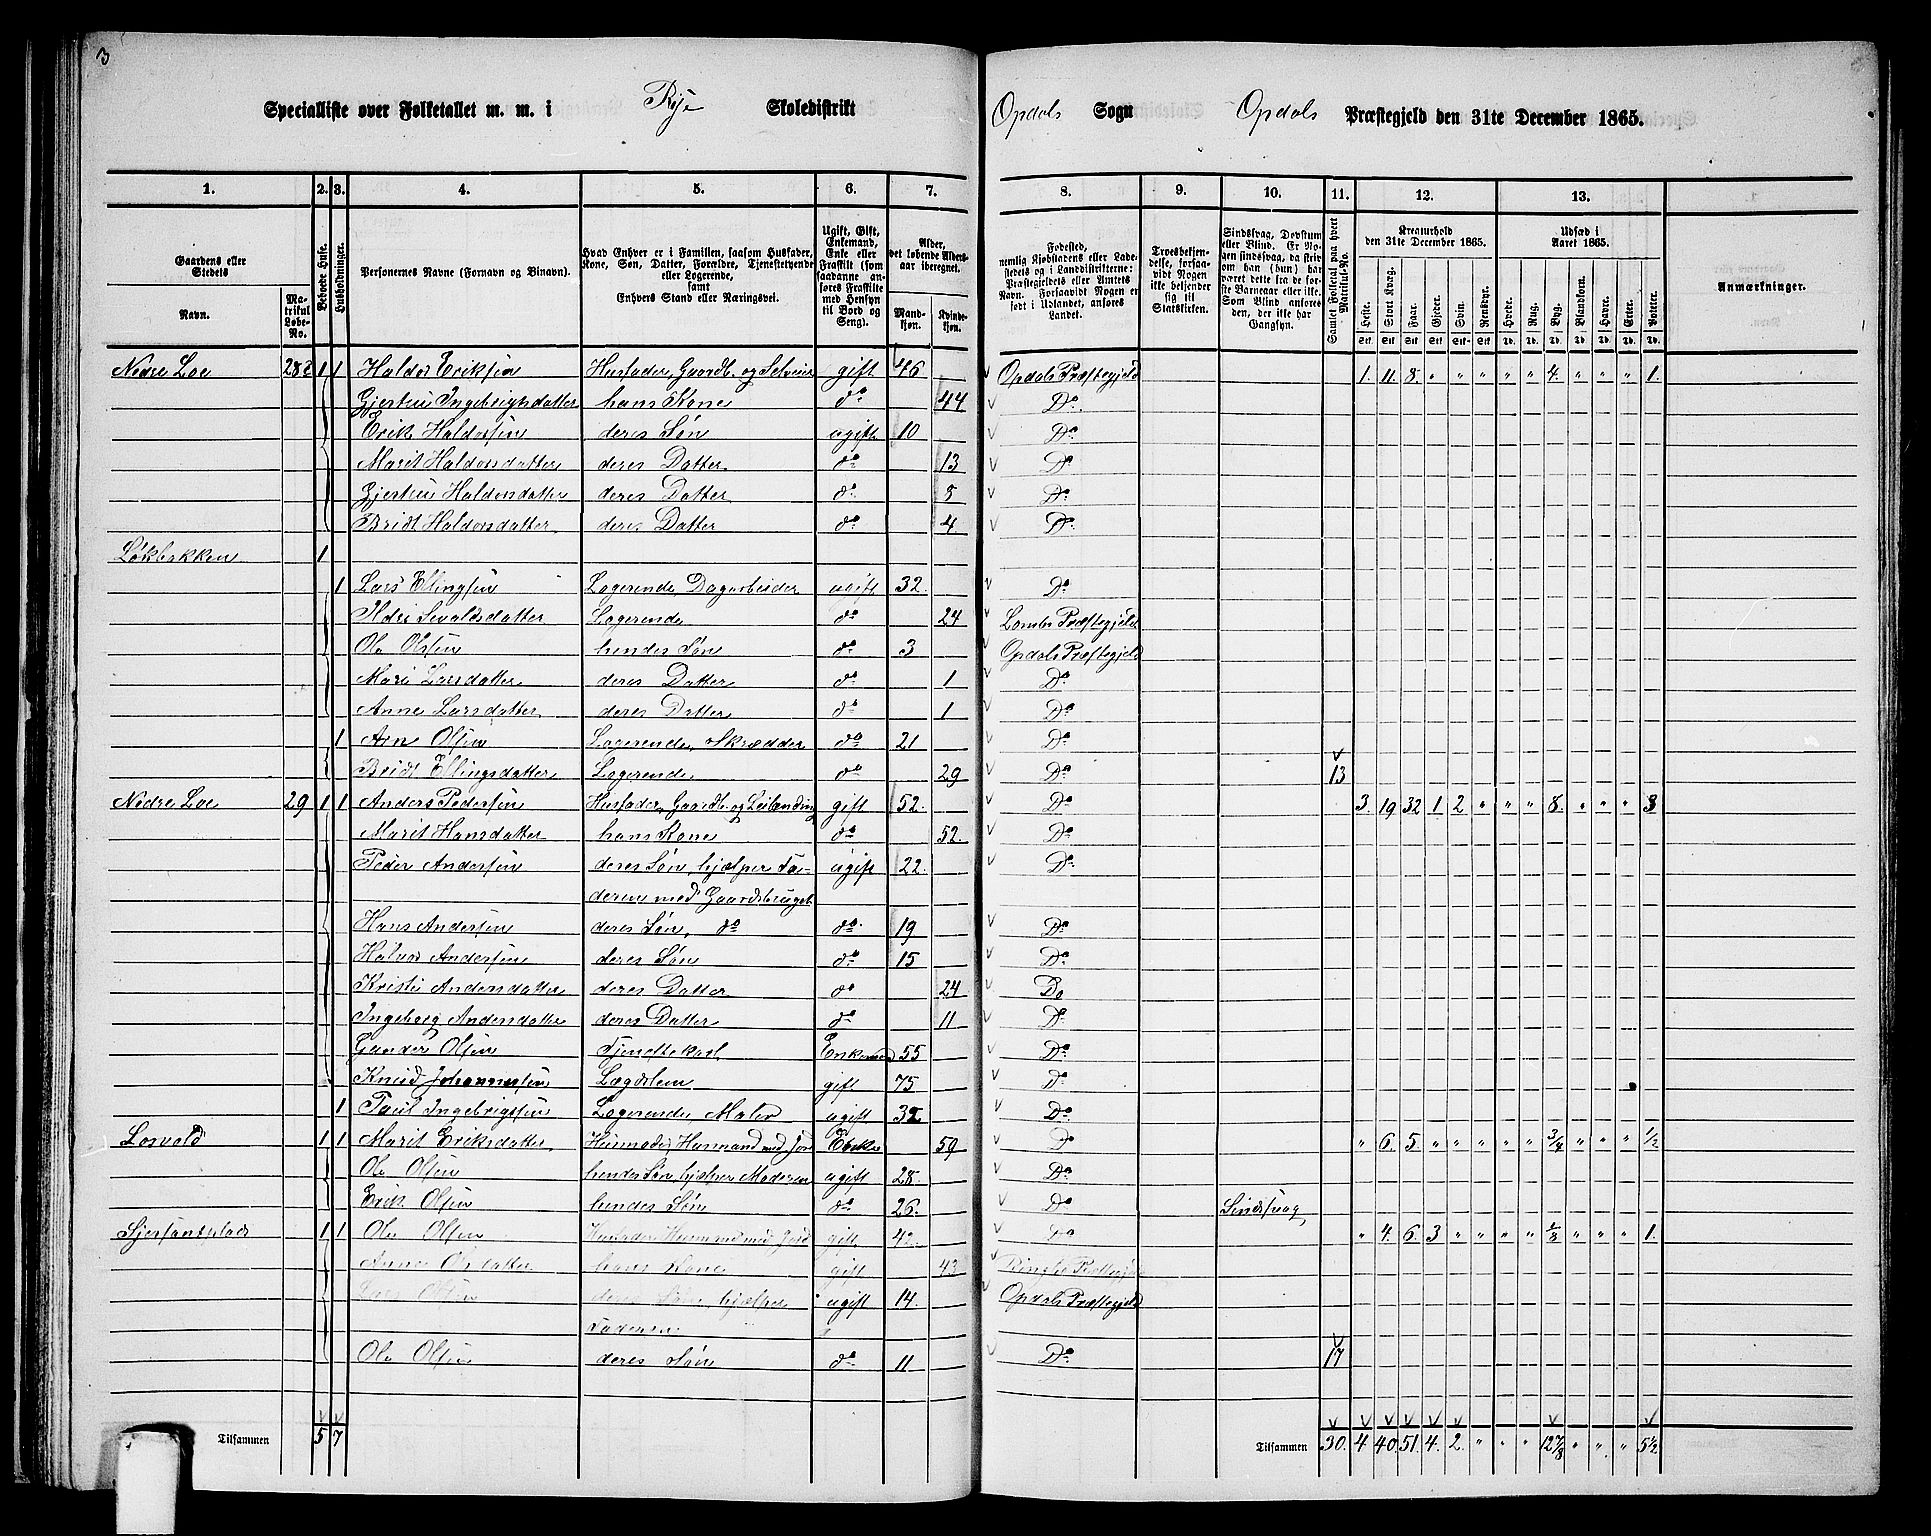 3
Specialliste over Folketallet m. m. i Rise Skoledistrikt Opdals Sogn Opdals Præstegjeld den 31te December 1865.
1. 2. 3. 4. 5. 6. 7. 8. 9. 10. 11. 12. 13.
Gaardens eller Stedets Navn. Matrikul Løbe-No. Beboede Huse. Husholdninger. Personernes Navne (Fornavn og Binavn). Hvad Enhver er i Familien, saasom Husfader, Kone, Søn, Datter, Forældre, Tjenestetyende eller Logerende, samt Enhvers Stand eller Næringsvei. Ugift, Gift, Enkemand, Enke eller Fraskilt (som saadanne anføres Fraskilte med Hensyn til Bord og Seng). Alder, det løbende Aldersaar iberegnet. Mandkjøn. Kvindekjøn. Fødested, nemlig Kjøbstadens eller Ladestedets og i Landdistrikterne: Præstegjeldets eller Amtets Navn. Forsaavidt Nogen er født i Udlandet, anføres Landet. Troesbekjendelse, forsaavidt Nogen ikke bekjender sig til Statskirken. Sindssvag, Døvstum eller Blind. Er Nogen sindssvag, da skriv om han (hun) har været dette fra de første Barneaar eller ikke. Som Blind anføres den, der ikke har Gangsyn. Samlet Folketal paa hvert Matrikul-No. Kreaturhold den 31te December 1865. Heste. Stort Kvæg. Faar. Gjeder. Svin. Rensdyr. Udsæd i Aaret 1865. Hvede. Rug. Byg. Blandkorn. Havre. Erter. Poteter. Anmærkninger.
Nedre Loe 28 1 1 Haldor Eriksen Husfader, Gaardb. og Selveier gift 46 Opdals Præstegjeld 1. 11. 8. " " " " " 4. " " " 1.
Gjertru Ingebrigtsdatter hans Kone do 44 Do
Erik Haldorsen deres Søn ugift 10 Do
Marit Haldorsdatter deres Datter do 13 Do
Gjertru Haldorsdatter deres Datter do Do
Bridt Haldorsdatter deres Datter do 4 Do
Løkbakken 1
1 Lars Ellingsen Logerende, Dagarbeider ugift 32. Do
Ildri Sevaldsdatter Logerende do 24 Præstegjeld
Ole Olsen hendes Søn do 3 Opdals Præstegjeld
Mari Larsdatter deres Datter do 1 Do
Anne Larsdatter deres Datter do 1 Do
1 Arn Olsen Logerende, Skrædder do 21 Do
Bridt Ellingsdatter Logerende do 29 Do 13
Nedre Loe 29 1 1 Anders Pedersen Husfader, Gaardb. og Leilænding gift 52. Do 3. 19 32 1 2 " " " 8. " " " 3
Marit Hansdatter hans Kone do 52. Do
Peder Andersen deres Søn, hjælper Fa- ugift 22. Do
deren med Gaardsbruget
Hans Andersen deres Søn, do do 19 Do
Halvor Andersen deres Søn do 15 Do
Kristi Andersdatter deres Datter do 24 Do
Ingeborg Andersdatter deres Datter do 11 Do
Gunder Olsen Tjenestekarl Enkemand 55 Do
Knud Johannesen Lægdslem gift 75 Do
1 Paul Ingebrigtsen Logerende, Maler ugift 32 Do
Losvold 1 1 Marit Eriksdatter Husmoder, Husmand med Jord Enke 59 Do " 6. 5. " " " " " 3/4 " " " 1/2
Ole Olsen hendes Søn, hjælper Moderen ugift 28. Do
Erik Olsen hendes Søn do 26. Do Sindssvag
Sjersantplads 1 1 Ole Olsen Husfader Husmand med Jord gift Do " 4. 6. 3 " " " " 1/8 " " " 1.
Anne Olsdatter hans Kone gift 43 Præstegjeld
Olsen deres Søn, hjælper ugift 14. Opdals Præstegjeld
Faderen
Ole Olsen deres Søn do 11 Do 17
Tilsammen 5 7 Tilsammen 30. 4. 40. 51. 4. 2. " " " 12 7/8 " " " 5 1/2